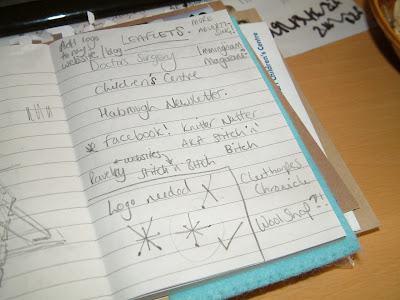 Add logo
to my
website/blog
LEAFLETS.
more
advertising!
Doctors Surgery
Immingham
Magazine?
Children's Centre
Habrough Newsletter.
Facebook! Knitter Natter
AKA Stitch 'n'
Bitch
websites
Ravelry Stitch 'n' Bitch
Logo needed
Cleethorpes
Chronicle
Wool Shop?!
Children's Centre